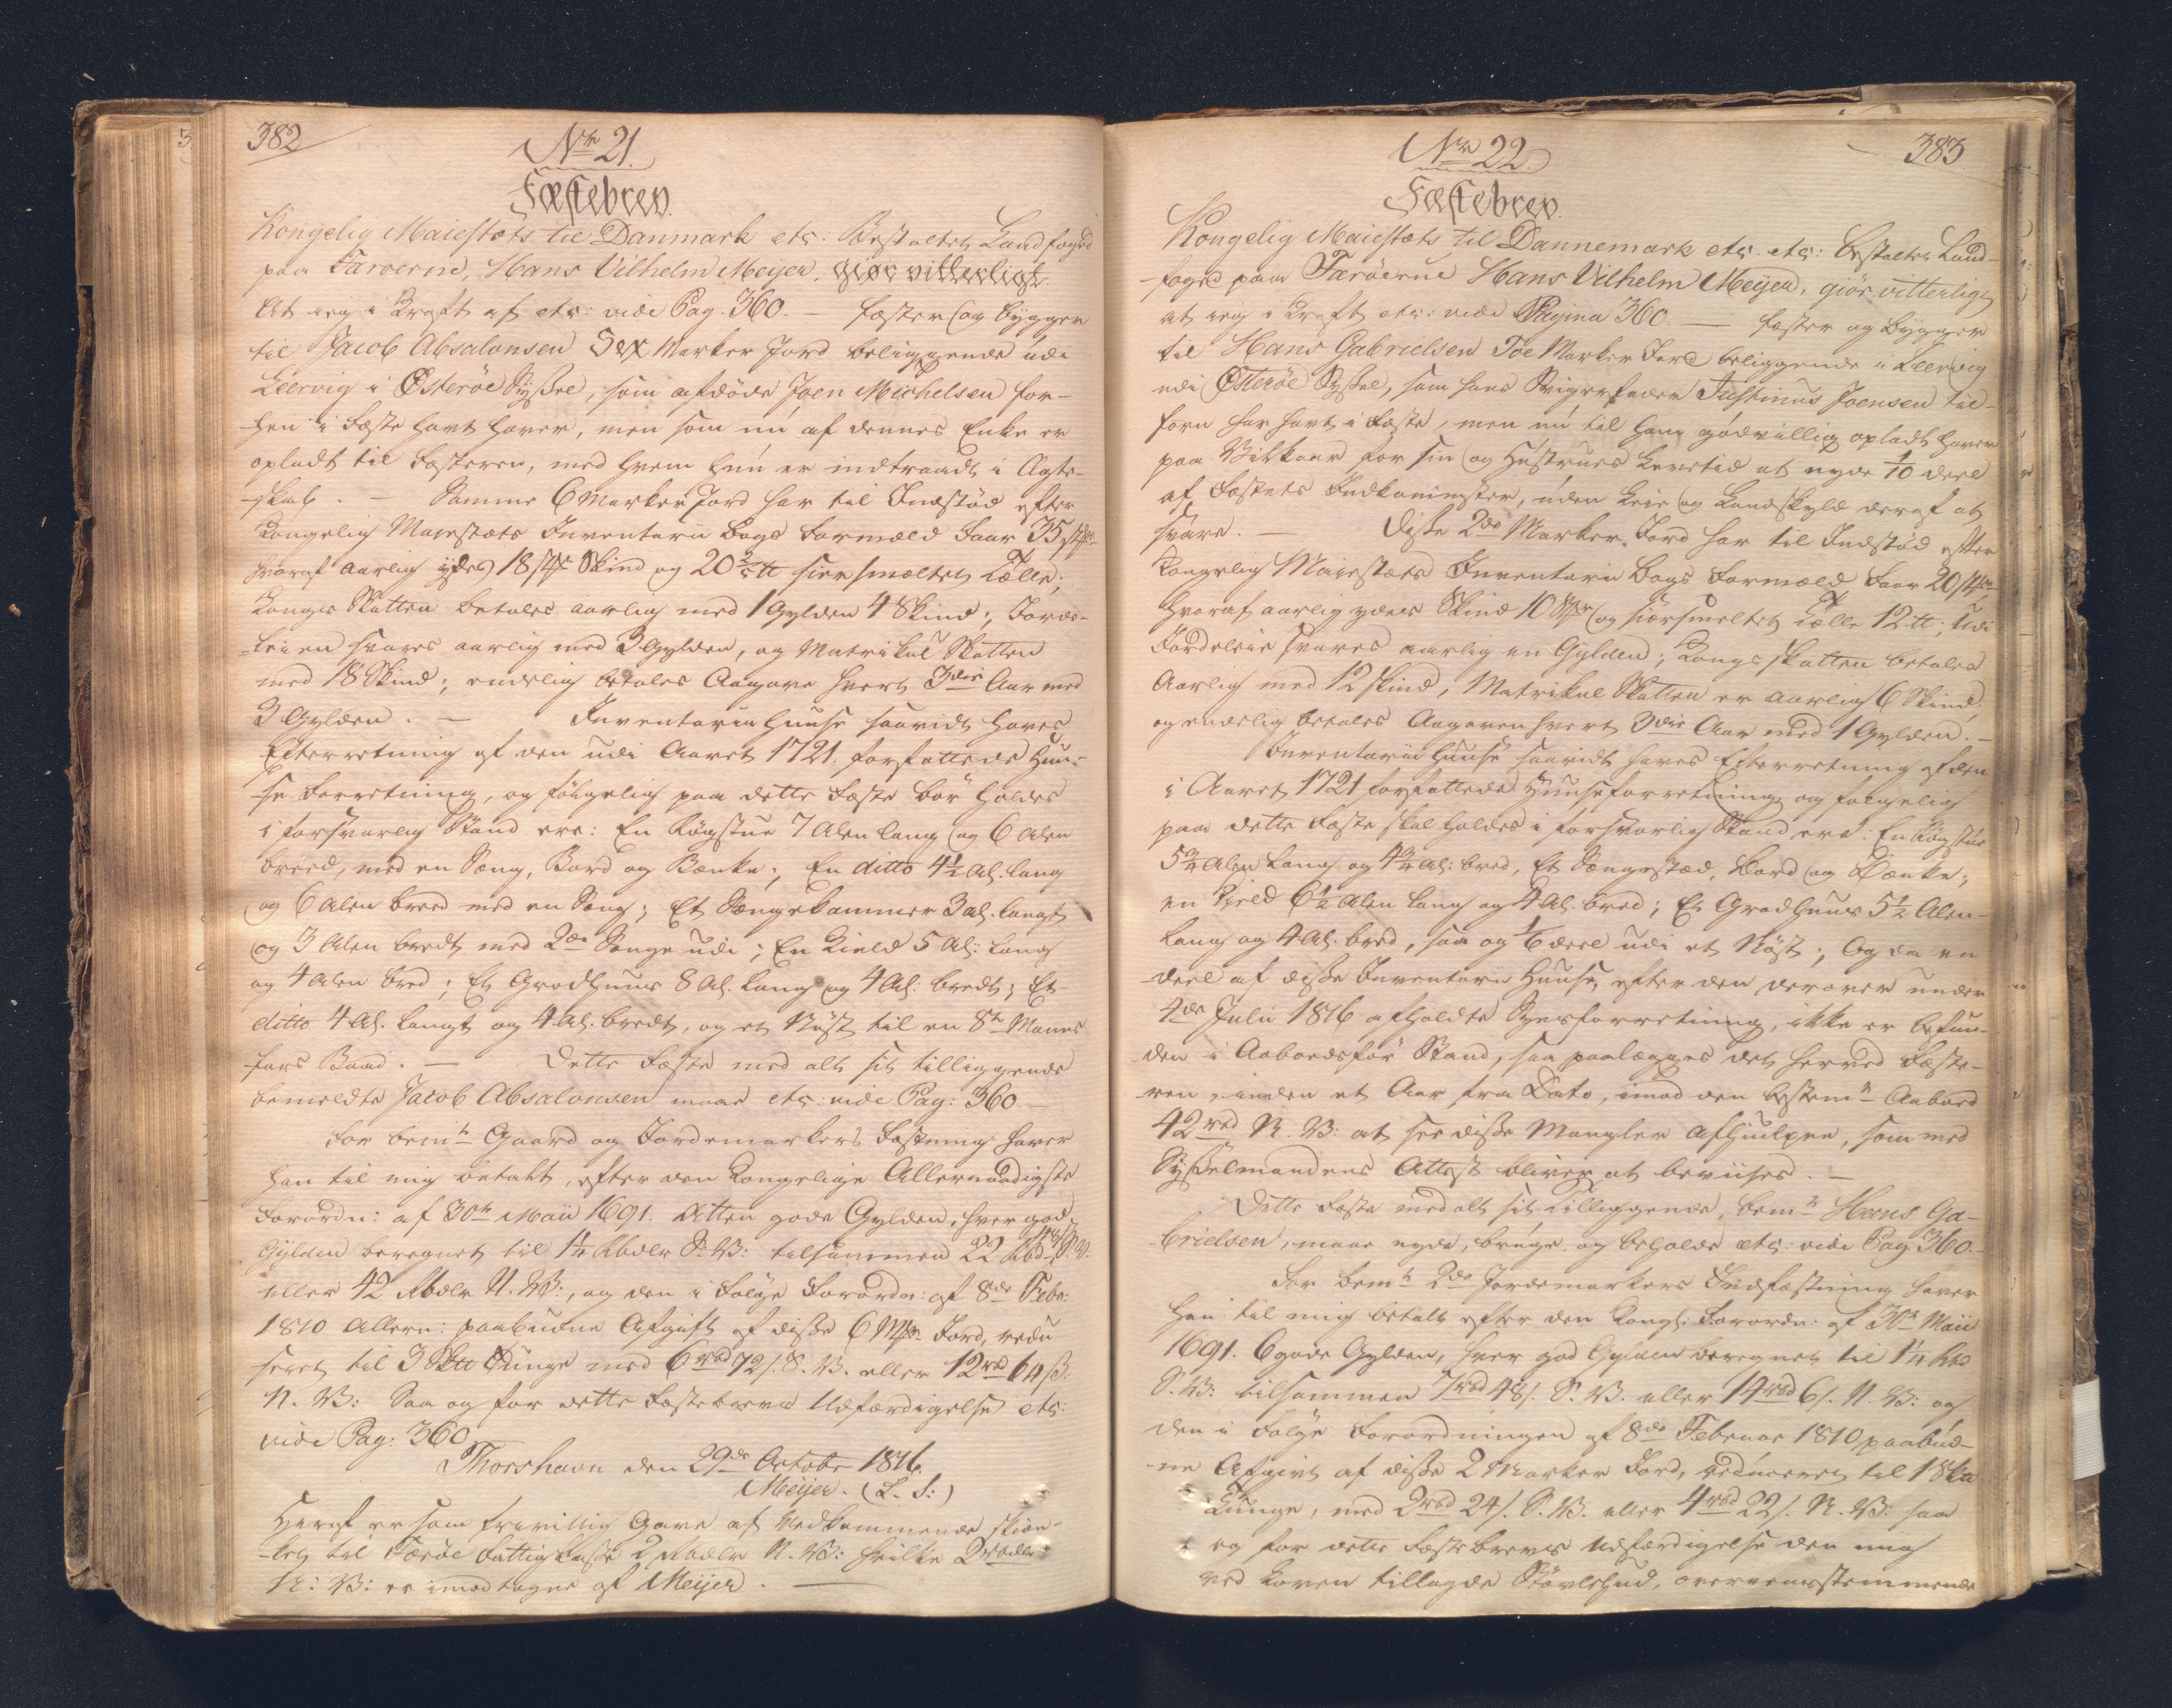 382
Nr 21.
Fæstebrev.
Kongelig Maiestæts til Danmark etc: Bestalter Landfoged
paa Færøerne, Hans Vilhelm Meyer, giør vitterligt:
At ieg i Kraft af etc: vide Pag. 360. — fæster og bygger
til Jacob Absalonsen Sex Marker Jord beliggende udi
Leervig i Østerøe Sysßel, som afdøde Joen Michelsen for-
-hen i Fæste havt haver, men som nu af dennes Enke er
opladt til Fæsteren, med hvem hun er indtraadt i Ægte-
-skab. — Samme 6 Marker Jord har til Indstød efter
Kongelig Maiestæts Inventarii Bogs Formæld Faar 35 stkr
hvoraf aarlig ydes 18 stkr Skind og 20 2/5 tt siersmeltet Tælle;
Konge Skatten betales aarlig med 1 Gylden 4 Skind; Jorde-
-leien svares aarlig med 3 Gylden, og Matrikul Skatten
med 18 Skind; endelig betales Aagave hvert 3die Aar med
3 Gylden. — Inventarii Huuse saavidt haves
Efterretning af den udi Aaret 1721. forfattede Huu-
-se Forretning, og følgelig paa dette Fæste bør holdes
i forsvarlig Stand ere: En Røgstue 7 Alen lang og 6 Alen
breed, med en Seng, Bord og Bænke; En ditto 4½ Al. lang
og 6 Alen breed med en Seng; Et Sengekammer 3 al. langt
og 3 Alen bredt med 2de Senge udi; En Kield 5 Al: lang
og 4 Alen bred; Et Grødhuus 8 Al. lang og 4 Al: bredt; Et
ditto 4 Al. langt og 4 Al. bredt, og et Nøst til en 8te Manns
fars Baad. — Dette Fæste med alt sit tilliggende
bemeldte Jacob Absalonsen maae etc: vide Pag: 360 —
For bemte Gaard og Jordemarkers Fæstning haver
han til mig betalt, efter den Kongelige Allernaadigste
Forordn: af 30te Maii 1691. Atten gode Gylden, hver god
Gylden beregnet til 1¼ Rbdlr S. V: tilsammen 22 Rbd 48 ß S. V.
eller 42 Rbdlr N. V:, og den i Følge Forordn: af 8de Febr:
1810 Allern: paabudne Afgift af disße 6 Mkr Jord, redu
seret til 3 Sktt Tunge med 6 rbd 72 ß. S. V. eller 12 rbd 64 ß.
N. V: Saa og for dette Fæstebrevs Udfærdigelse etc:
vide Pag. 360.
Thorshavn den 29de Octobr 1816.
Meyer. (L. S:)
Heraf er som frivillig Gave af Vedkommende skiæn-
-ket til Færøe Fattigcasße 2 Rbdlr N. V: hvilke 2 rbdlr
N: V: er imodtagne af Meyer. —
383
Nr 22.
Fæstebrev.
Kongelig Maiestæts til Dannemark etc. etc: Bestalter Land-
-foged paa Færøerne Hans Vilhelm Meyer, giør vitterligt
at ieg i Kraft etc: vide Pagina 360. — fæster og bygger
til Hans Gabrielsen Toe Marker Jord beliggende i Leervig
udi Østerøe Sysßel, som hans Svigerfader Justinus Joensen til-
forn har havt i Fæste, men nu til ham godvillig opladt haver
paa Vilkaar for sin og Hustrues Levetid at nyde 1/10 deel
af Fæstets Indkommster, uden Leie og Landskyld deraf at
svare. — Disße 2de Marker Jord har til Indstød efter
Kongelig Maiestæts Inventarii Bogs Formæld Faar 20 stkr
hvoraf aarlig ydes Skind 10 Stkr og siersmeltet Tælle 12 tt; Udi
Jordeleie svares aarlig en Gylden; Kongeskatten betales
Aarlig med 12 Skind, Matrikul Skatten er aarlig 6 Skind
og endelig betales Aagaven hvert 3die Aar med 1 Gylden. —
Inventarii Huuse saavidt haves Efterretning af den
i Aaret 1721 forfattede Huuseforretning og følgelig
paa dette Fæste skal holdes i forsvarlig Stand ere: En Røgstue
5¾ Alen lang og 4¾ Al: bred, Et Sengested, Bord og Bænke;
en Kield 6½ Alen lang og 4 Al. bred; Et Grødhuus 5½ Alen
lang og 4 Al. bred, saa og 1/6 deel udi et Nøst; Og da en
deel af disße Inventarii Huuse, efter den derover under
4de Julii 1816 afholdte Synsforretning, ikke er befun-
-den i Aabodsfør Stand, saa paalægges det herved Fæste-
-ren, inden et Aar fra Dato, imod den bestemte Aabod
42 rbd N. V: at see disße Mangler afhiulpne, som med
Sysßelmandens Attest bliver at beviises. —
Dette Fæste med alt sit Tilliggende, bemte Hans Ga-
-brielsen, maae nyde, bruge og beholde etc: vide Pag 360. —
For bemte 2de Jordemarkers Indfæstning haver
han til mig betalt efter den Kongl: Forordn: af 30te Maii
1691. 6 gode Gylden, hver god Gylden beregnet til 1¼ Rbd
S. V: tilsammen 7 rbd 48 ß. S. V. eller 14 rbd 6 ß. N. V: og
den i Følge Forordningen af 8de Februar 1810 paabud-
-ne Afgivt af disße 2 Marker Jord, reduceret til 1 Sktt
Tunge, med 2 rbd 24 ß. S. V. eller 4 rbd 22 ß. N. V: saa
og for dette Fæstebrevs Udfærdigelse den mig
ved Loven tillagde Støvlehud, overeensstemmende